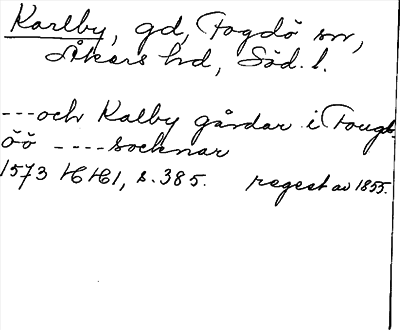 Karlby, gd, Fogdö sn,
Åkers hd, Söd. l.
---och Kalby gårdar i Fough-
öö ----socknar
1573 HH1, s. 385. regest av 1855.